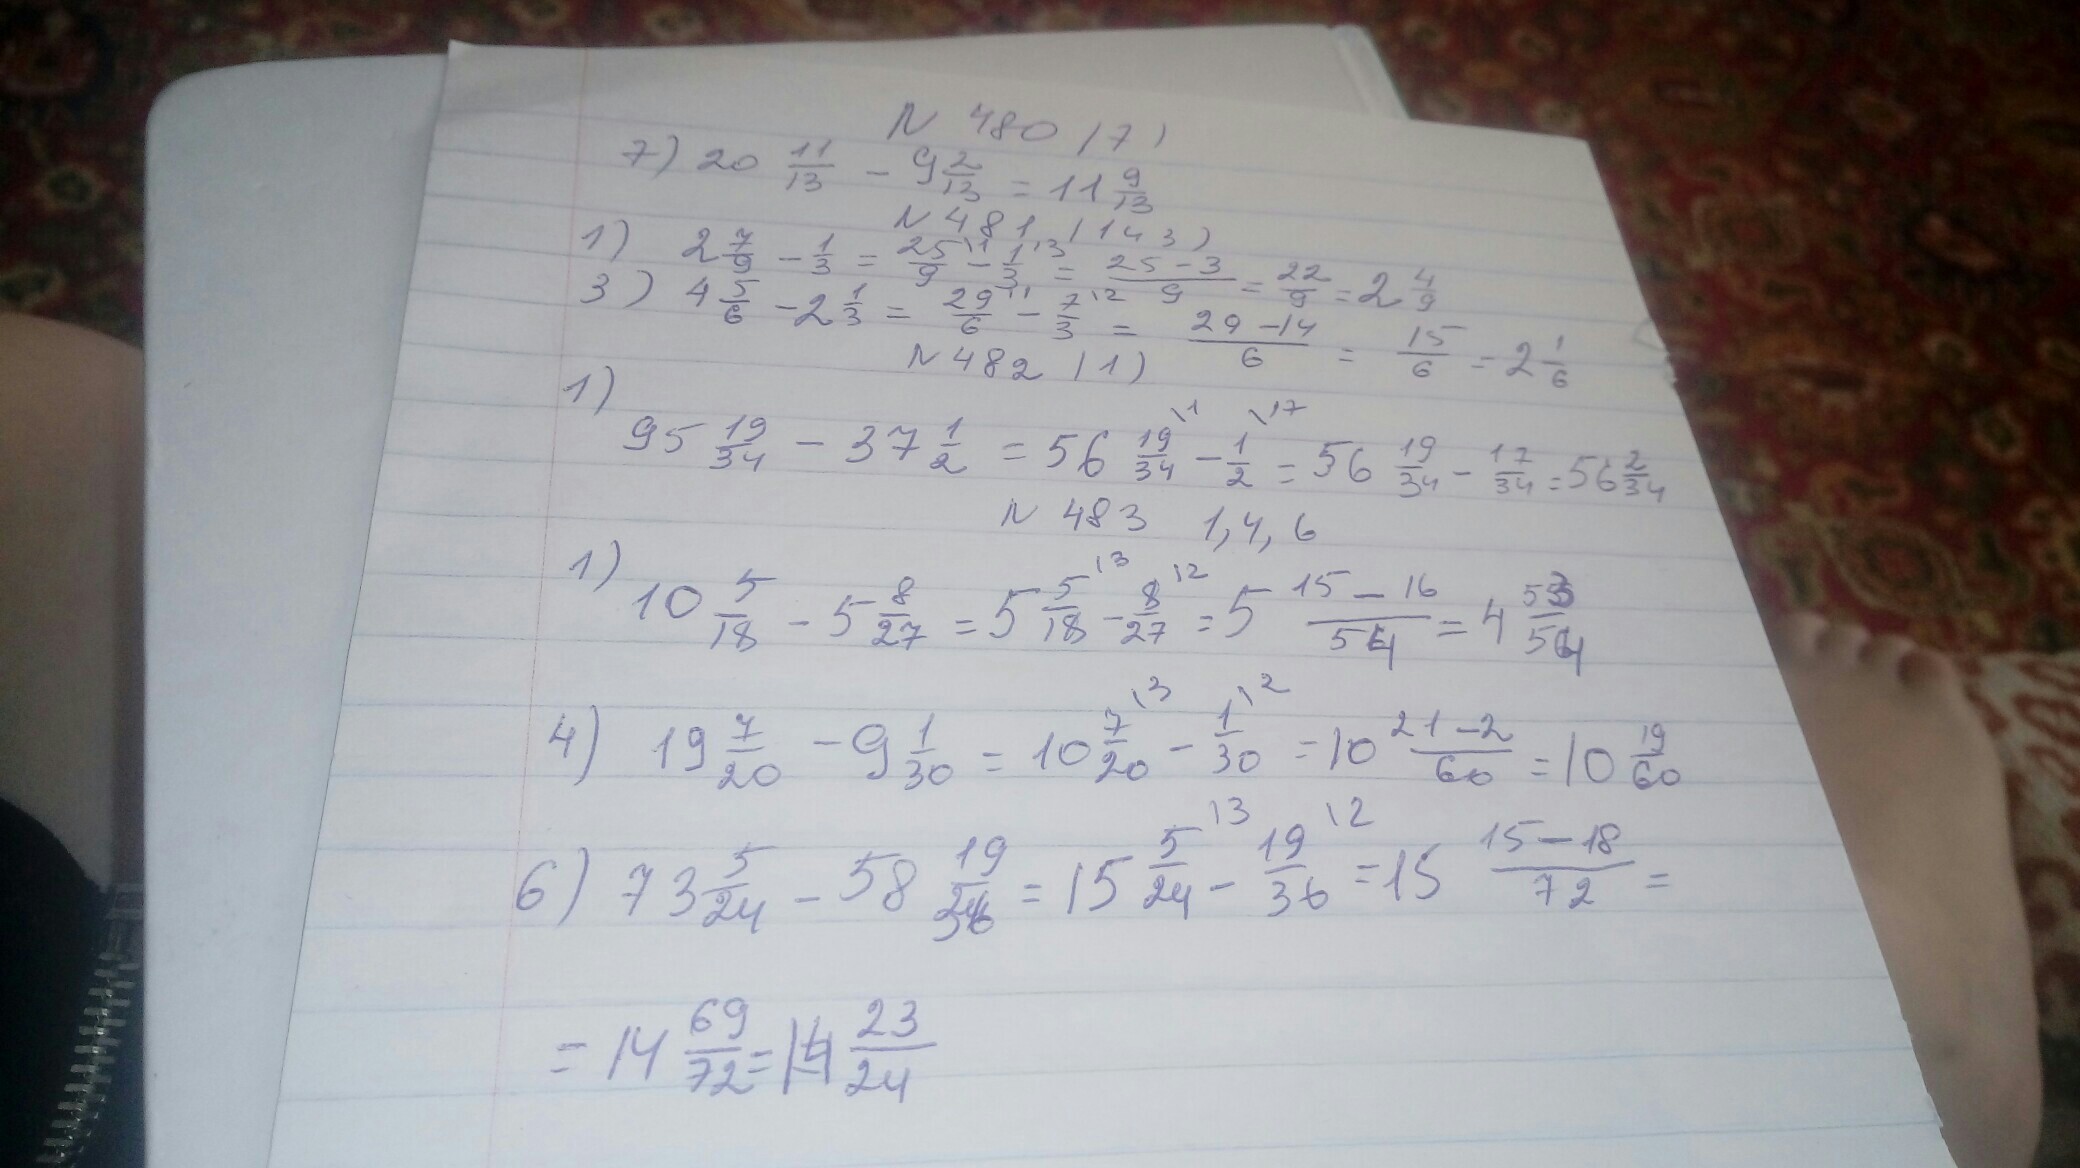 N 480 (7)
7) 20 11/13 - 9 2/13 = 11 9/13
N 481 (1 и 3)
1) 2 7/9 - 1/3 = 25/9 \1 - 1/3 \3 = (25 - 3)/9 = 22/9 = 2 4/9
3) 4 5/6 - 2 1/3 = 29/6 \1 - 7/3 \2 = (29 - 14)/6 = 15/6 = 2 1/6
N 482 (1)
1)
95 19/34 - 37 1/2 = 56 19/34 \1 - 1/2 \17 = 56 19/34 - 17/34 = 56 2/34
N 483 1, 4, 6
1) 10 5/18 - 5 8/27 = 5 5/18 \3 - 8/27 \2 = 5 (15 - 16)/54 = 4 53/54
4) 19 7/20 - 9 1/30 = 10 7/20 \3 - 1/30 \2 = 10 (21 - 2)/60 = 10 19/60
6) 73 5/24 - 58 19/36 = 15 5/24 \3 - 19/36 \2 = 15 (15 - 18)/72 =
= 14 69/72 = 14 23/24